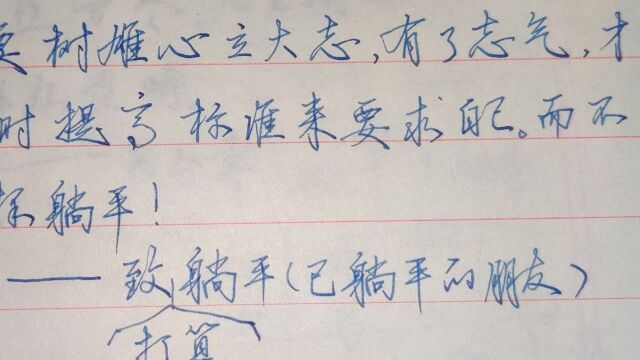 要树雄心立大志,有了志气,才
时提高标准来要求自己。而不
躺平!
——致躺平(已躺平的朋友)
打算